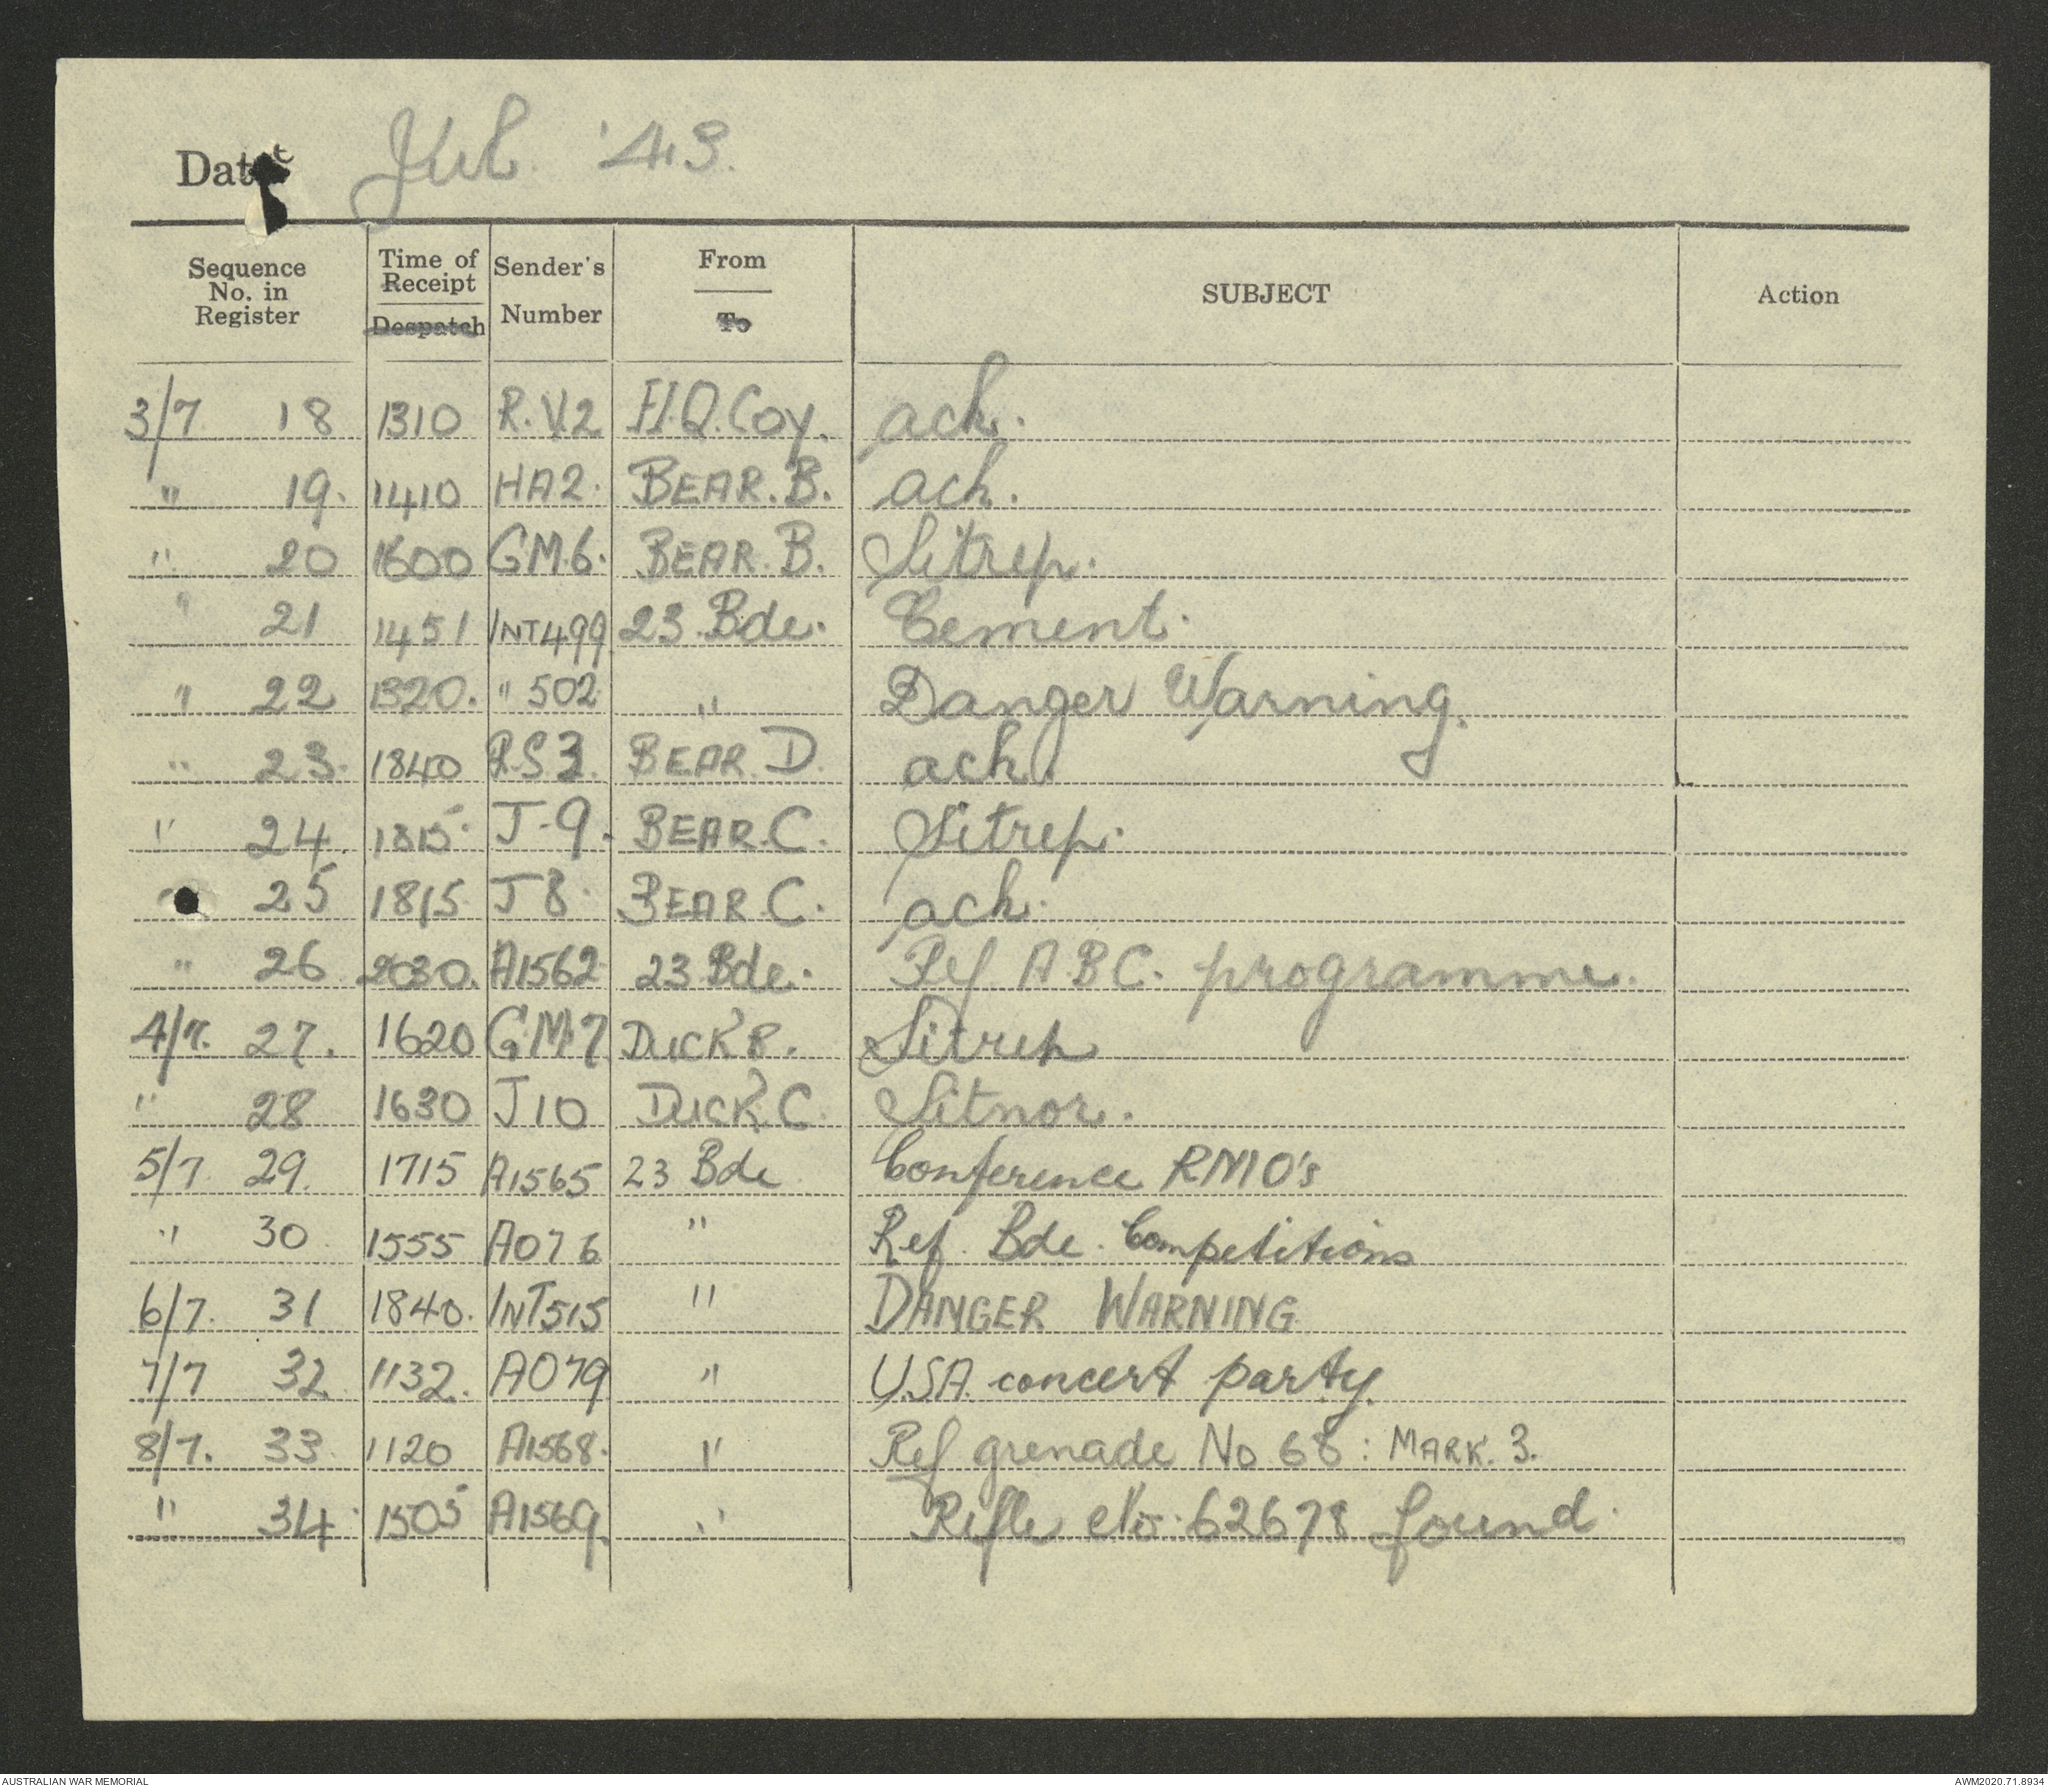 Date Jul. '43.
Sequence No. in Register | Time of Receipt Despatch | Sender's Number | From To | SUBJECT | Action
3/7 18 1310 R.V.2 H.Q.Coy. ack.
" 19. 1410 HA2. BEAR.B. ack.
" 20 1600 GM.6. BEAR.B. Sitrep.
" 21 1451 INT499 23.Bde. Cement.
" 22 1320. " 502 " Danger Warning.
" 23. 1840 RS3. BEAR.D. ack.
" 24. 1815 J-9. BEAR.C. Sitrep.
" 25 1815 J8. BEAR.C. ack.
" 26 2030. A1562 23.Bde. Ref A.B.C. programme.
4/7. 27. 1620 G.M.7 DUCK B. Sitrep
" 28 1630 J10 DUCK.C. Sitnor.
5/7. 29. 1715 A1565 23 Bde Conference RMO's
" 30 1555 A076 " Ref. Bde. Competitions
6/7. 31 1840. INT515 " DANGER WARNING
7/7 32 1132. A079 " U.S.A. concert party.
8/7. 33 1120 A1568. " Ref grenade No 68: MARK. 3.
" 34. 1505 A1569. " Rifle No. 62678 found.
AUSTRALIAN WAR MEMORIAL AWM2020.71.8934